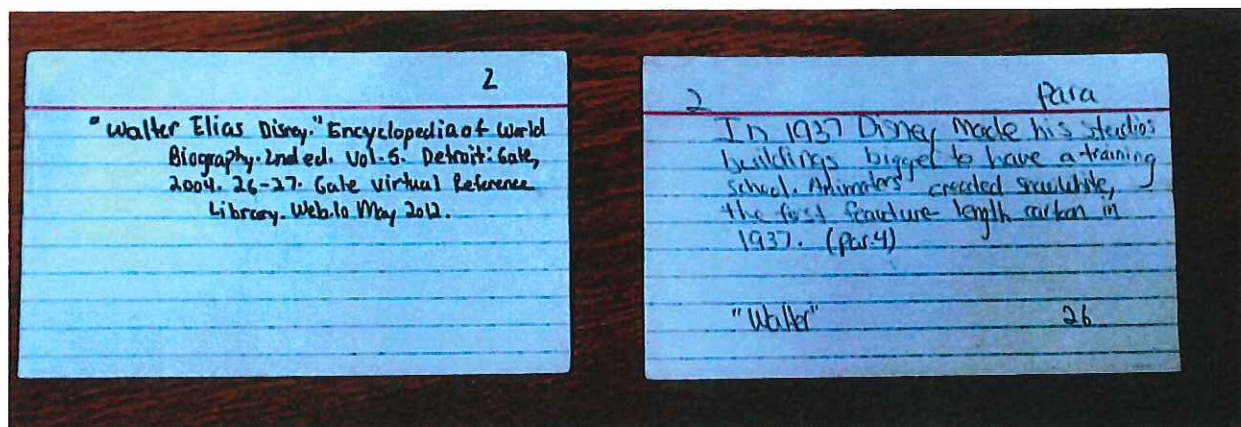 2
"Walter Elias Disney." Encyclopedia of World
Biography. 2nd ed. Vol. 5. Detroit: Gale,
2004. 26-27. Gale Virtual Reference
Library. Web. 10 May 2012.
2 Para
In 1937 Disney Made his studios
buildings bigger to have a training
school. Animators created snow white,
the first feature length
in
1937. (par.4)
"Walter" 26